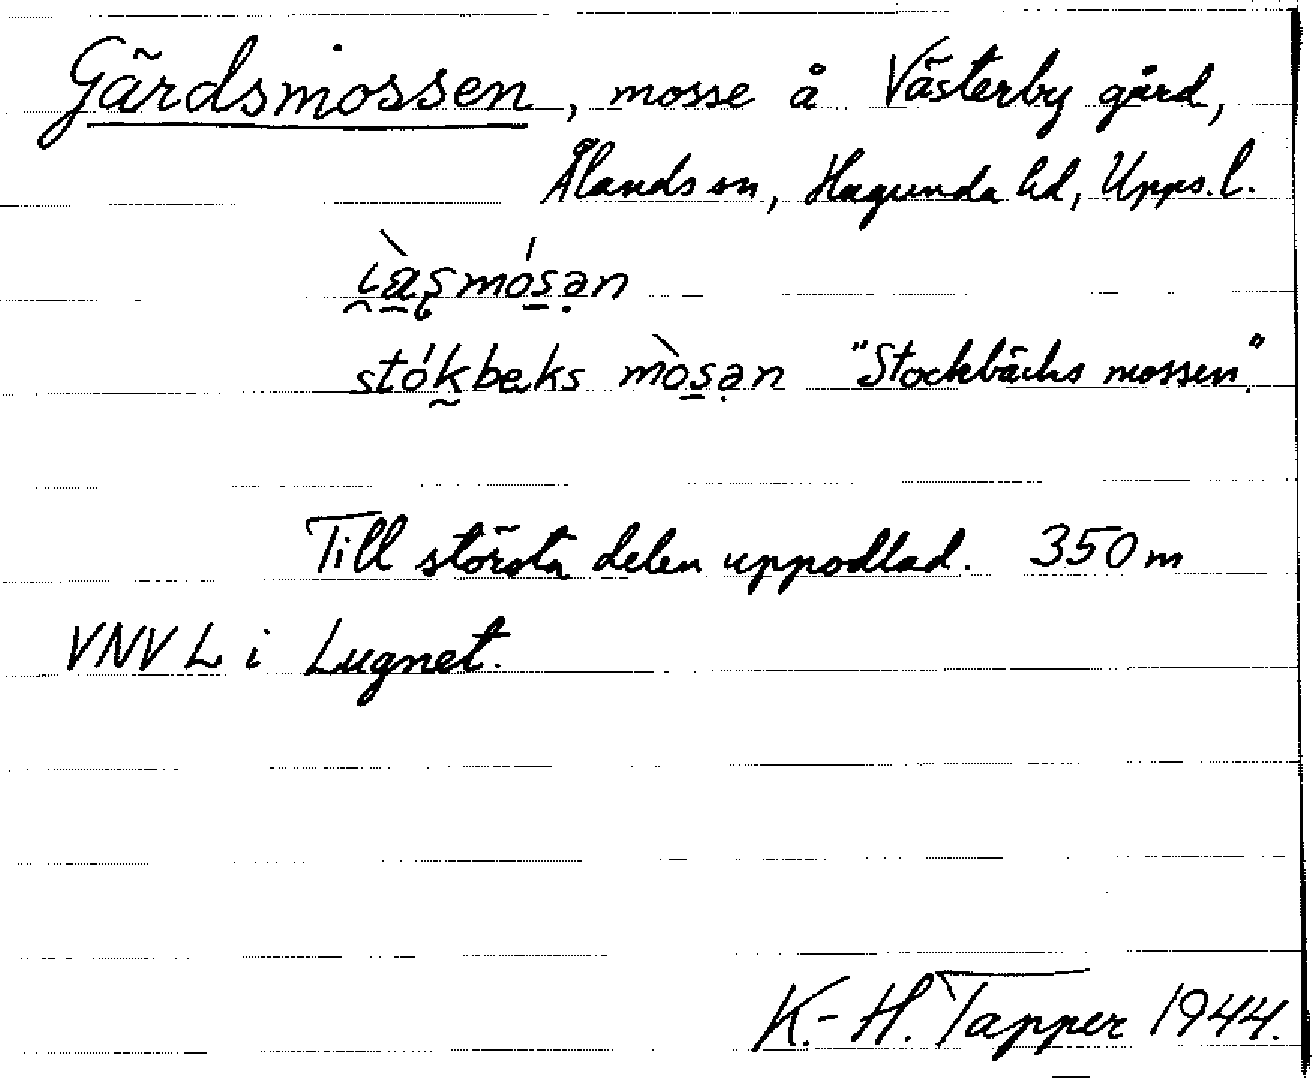 Gärdsmossen, mosse å Västerby gård,
Ålands sn, Hagunda hd, Upps. l.
mósən
stókbeks mòsən "Stockbäcks mossen".
Till största delen uppodlad. 350 m
VNV L i Lugnet.
K.-H. Tapper 1944.